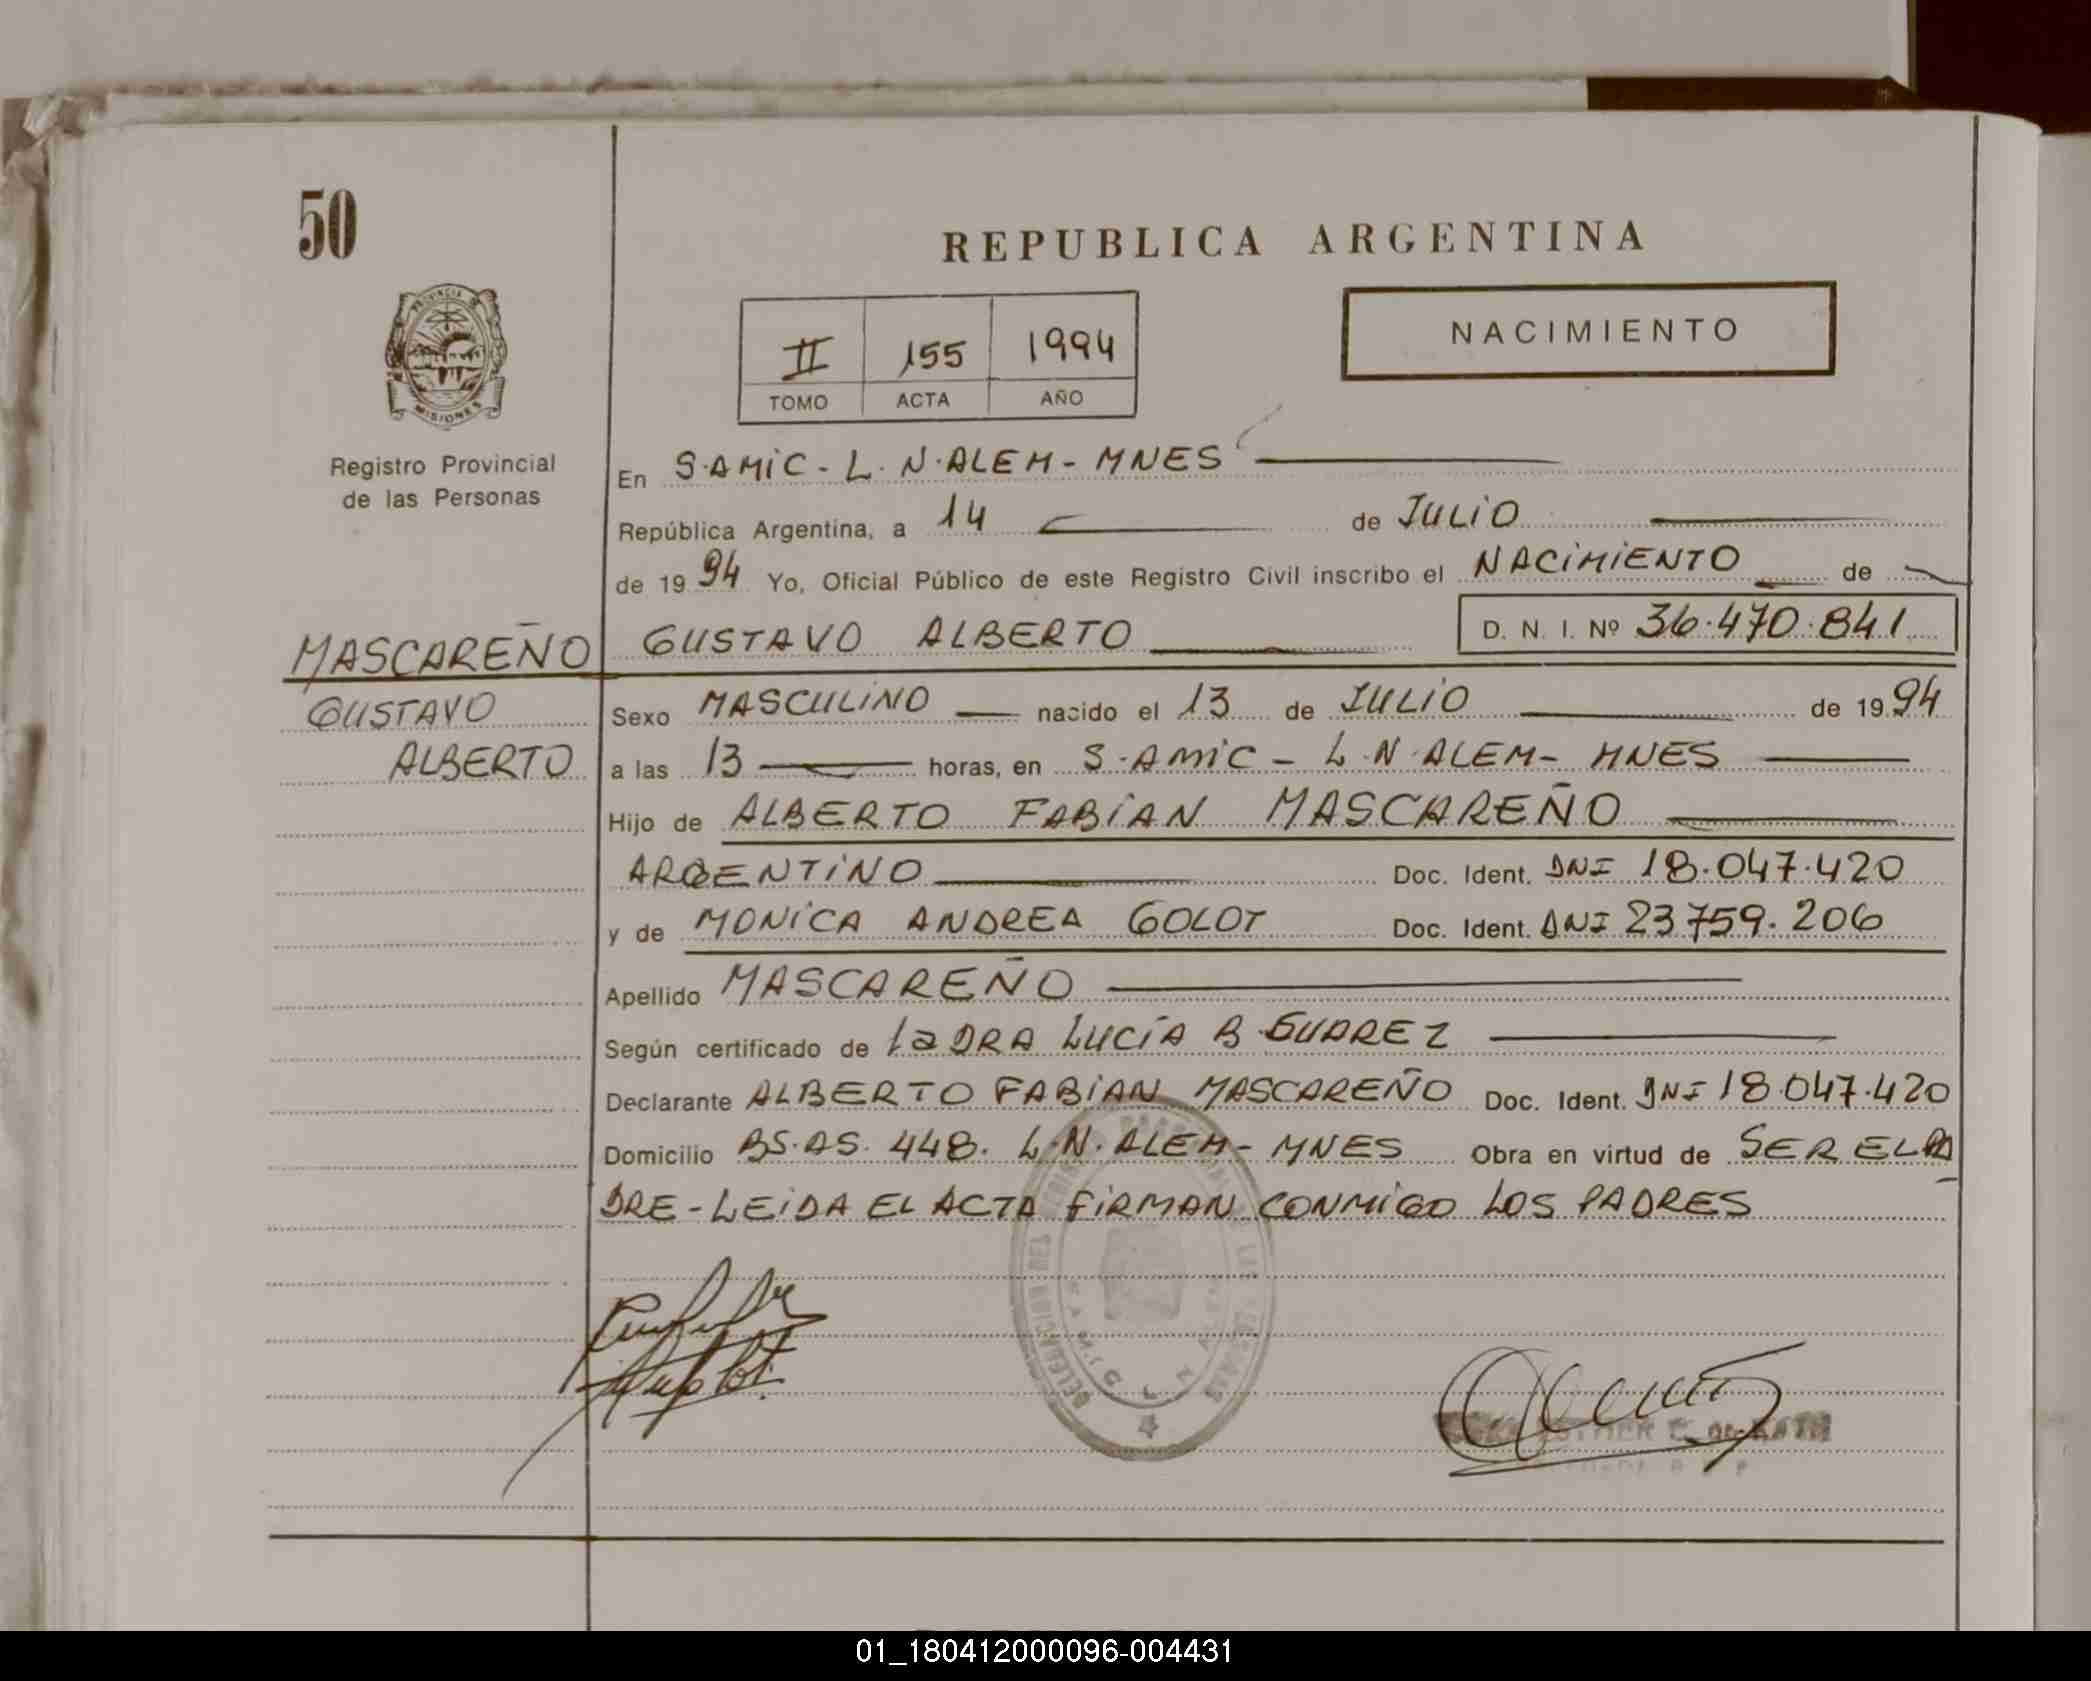 50
REPUBLICA ARGENTINA
PROVINCIA DE
MISIONES
II 155 1994
TOMO ACTA AÑO
NACIMIENTO
Registro Provincial
de las Personas
En S.AMIC - L. N. ALEM - MNES
República Argentina, a 14 de JULIO
de 1994 Yo, Oficial Público de este Registro Civil inscribo el NACIMIENTO de
MASCAREÑO GUSTAVO ALBERTO D. N. I. Nº 36.470.841
GUSTAVO Sexo MASCULINO nacido el 13 de JULIO de 1994
ALBERTO a las 13 horas, en S.AMIC - L.N.ALEM - MNES
Hijo de ALBERTO FABIAN MASCAREÑO
ARGENTINO Doc. Ident. DNI 18.047.420
y de MONICA ANDREA GOLOT Doc. Ident. DNI 23.759.206
Apellido MASCAREÑO
Según certificado de la DRA LUCÍA B. SUAREZ
Declarante ALBERTO FABIAN MASCAREÑO Doc. Ident. DNI 18.047.420
Domicilio BS.AS. 448. L.N. ALEM - MNES Obra en virtud de SER EL PA
DRE - LEIDA EL ACTA FIRMAN CONMIGO LOS PADRES
01_180412000096-004431